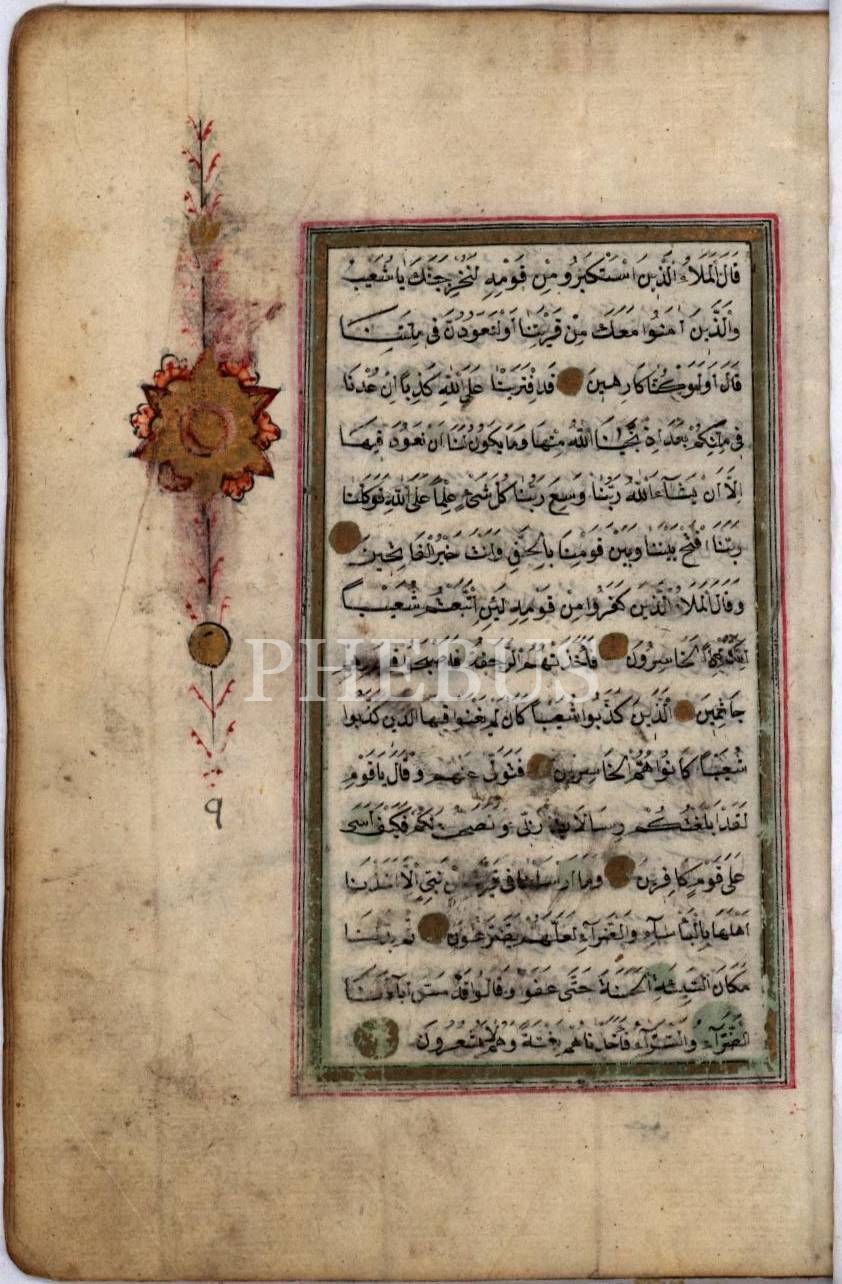 قَالَ الْمَلَاُ الَّذِينَ اسْتَكْبَرُو مِنْ قَوْمِهِ لَنُخْرِجَنَّكَ يَا شُعَيْبُ
وَالَّذِينَ اٰمَنُوا مَعَكَ مِنْ قَرْيَتِنَا اَوْ لَتَعُودُنَّ فِى مِلَّتِنَا
قَالَ اَوَلَوْ كُنَّا كَارِهِينَ قَدِ افْتَرَيْنَا عَلَى اللّٰهِ كَذِبًا اِنْ عُدْنَا
فِى مِلَّتِكُمْ بَعْدَ اِذْ نَجّٰينَا اللّٰهُ مِنْهَا وَمَا يَكُونُ لَنَا اَنْ نَعُودَ فِيهَا
اِلَّا اَنْ يَشَاءَ اللّٰهُ رَبُّنَا وَسِعَ رَبُّنَا كُلَّ شَىْءٍ عِلْمًا عَلَى اللّٰهِ تَوَكَّلْنَا
رَبَّنَا افْتَحْ بَيْنَنَا وَبَيْنَ قَوْمِنَا بِالْحَقِّ وَاَنْتَ خَيْرُ الْفَاتِحِينَ
وَقَالَ الْمَلَاُ الَّذِينَ كَفَرُوا مِنْ قَوْمِهِ لَئِنِ اتَّبَعْتُمْ شُعَيْبًا
اِنَّكُمْ اِذًا لَخَاسِرُونَ فَاَخَذَتْهُمُ الرَّجْفَةُ فَاَصْبَحُوا فِى دَارِهِمْ
PHEBUS
جَاثِمِينَ الَّذِينَ كَذَّبُوا شُعَيْبًا كَاَنْ لَمْ يَغْنَوْا فِيهَا الَّذِينَ كَذَّبُوا
شُعَيْبًا كَانُوا هُمُ الْخَاسِرِينَ فَتَوَلّٰى عَنْهُمْ وَقَالَ يَا قَوْمِ
لَقَدْ اَبْلَغْتُكُمْ رِسَالَاتِ رَبِّى وَنَصَحْتُ لَكُمْ فَكَيْفَ اٰسٰى
عَلٰى قَوْمٍ كَافِرِينَ وَمَا اَرْسَلْنَا فِى قَرْيَةٍ مِنْ نَبِىٍّ اِلَّا اَخَذْنَا
اَهْلَهَا بِالْبَاْسَاءِ وَالضَّرَّاءِ لَعَلَّهُمْ يَضَّرَّعُونَ ثُمَّ بَدَّلْنَا
مَكَانَ السَّيِّئَةِ الْحَسَنَةَ حَتّٰى عَفَوْا وَقَالُوا قَدْ مَسَّ اٰبَاءَنَا
الضَّرَّاءُ وَالسَّرَّاءُ فَاَخَذْنَاهُمْ بَغْتَةً وَهُمْ لَا يَشْعُرُونَ
٩